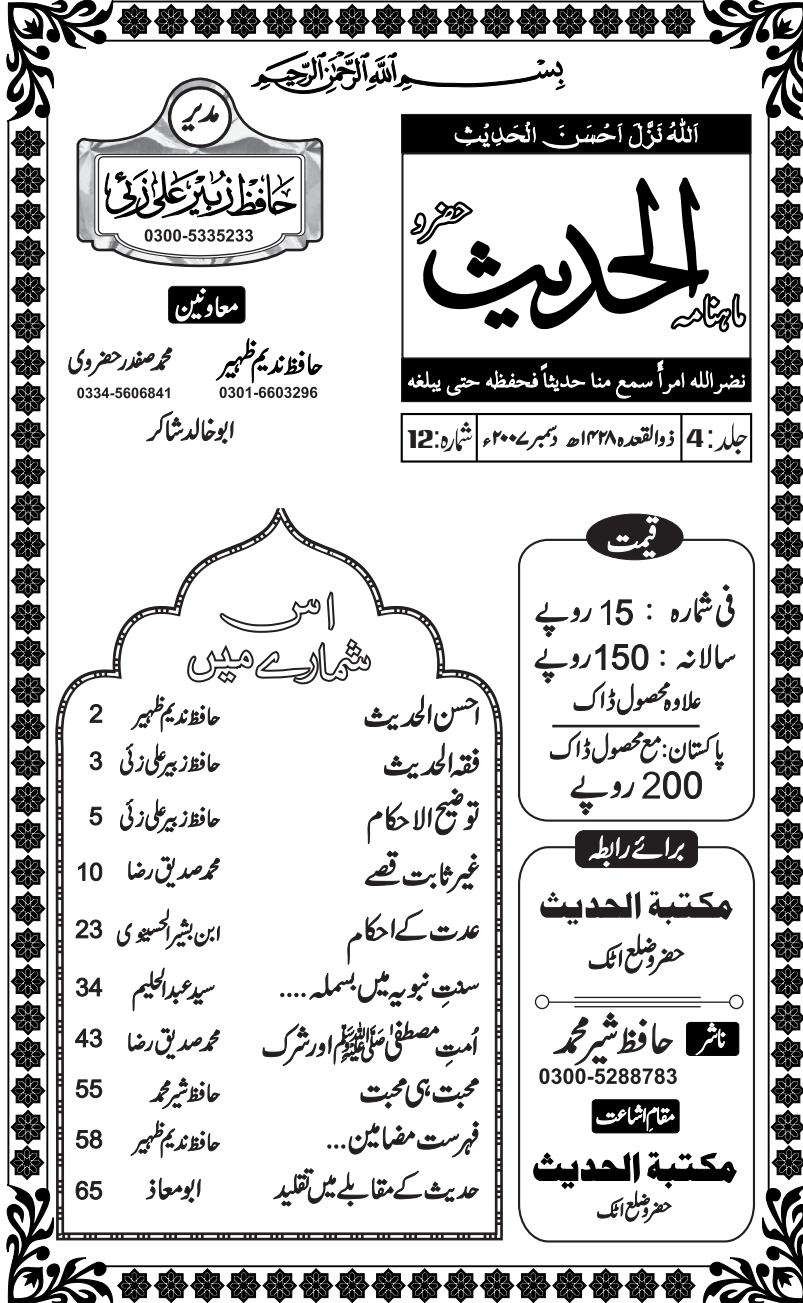 بِسْمِ اللّٰهِ الرَّحْمٰنِ الرَّحِيْمِ
اَللّٰهُ نَزَّلَ اَحْسَنَ الْحَدِيْثِ
ماہنامہ الحدیث حضرو
نضر الله امرأً سمع منا حديثاً فحفظه حتى يبلغه
جلد: 4 ذوالقعدہ ۱۴۲۸ھ دسمبر ۲۰۰۷ء شمارہ: 12
مدیر
حافظ زبیر علی زئی
0300-5335233
معاونین
حافظ ندیم ظہیر محمد صفدر حضروی
0301-6603296 0334-5606841
ابو خالد شاکر
قیمت
فی شمارہ : 15 روپے
سالانہ : 150 روپے
علاوہ محصول ڈاک
پاکستان: مع محصول ڈاک
200 روپے
برائے رابطہ
مکتبة الحدیث
حضرو ضلع اٹک
ناشر حافظ شیر محمد
0300-5288783
مقام اشاعت
مکتبة الحدیث
حضرو ضلع اٹک
اس
شمارے میں
احسن الحدیث حافظ ندیم ظہیر 2
فقہ الحدیث حافظ زبیر علی زئی 3
توضیح الاحکام حافظ زبیر علی زئی 5
غیر ثابت قصے محمد صدیق رضا 10
عدت کے احکام ابن بشیر الحسینوی 23
سنتِ نبویہ میں بسملہ .... سید عبدالحلیم 34
اُمتِ مصطفیٰ ﷺ اور شرک محمد صدیق رضا 43
محبت ہی محبت حافظ شیر محمد 55
فہرست مضامین... حافظ ندیم ظہیر 58
حدیث کے مقابلے میں تقلید ابو معاذ 65